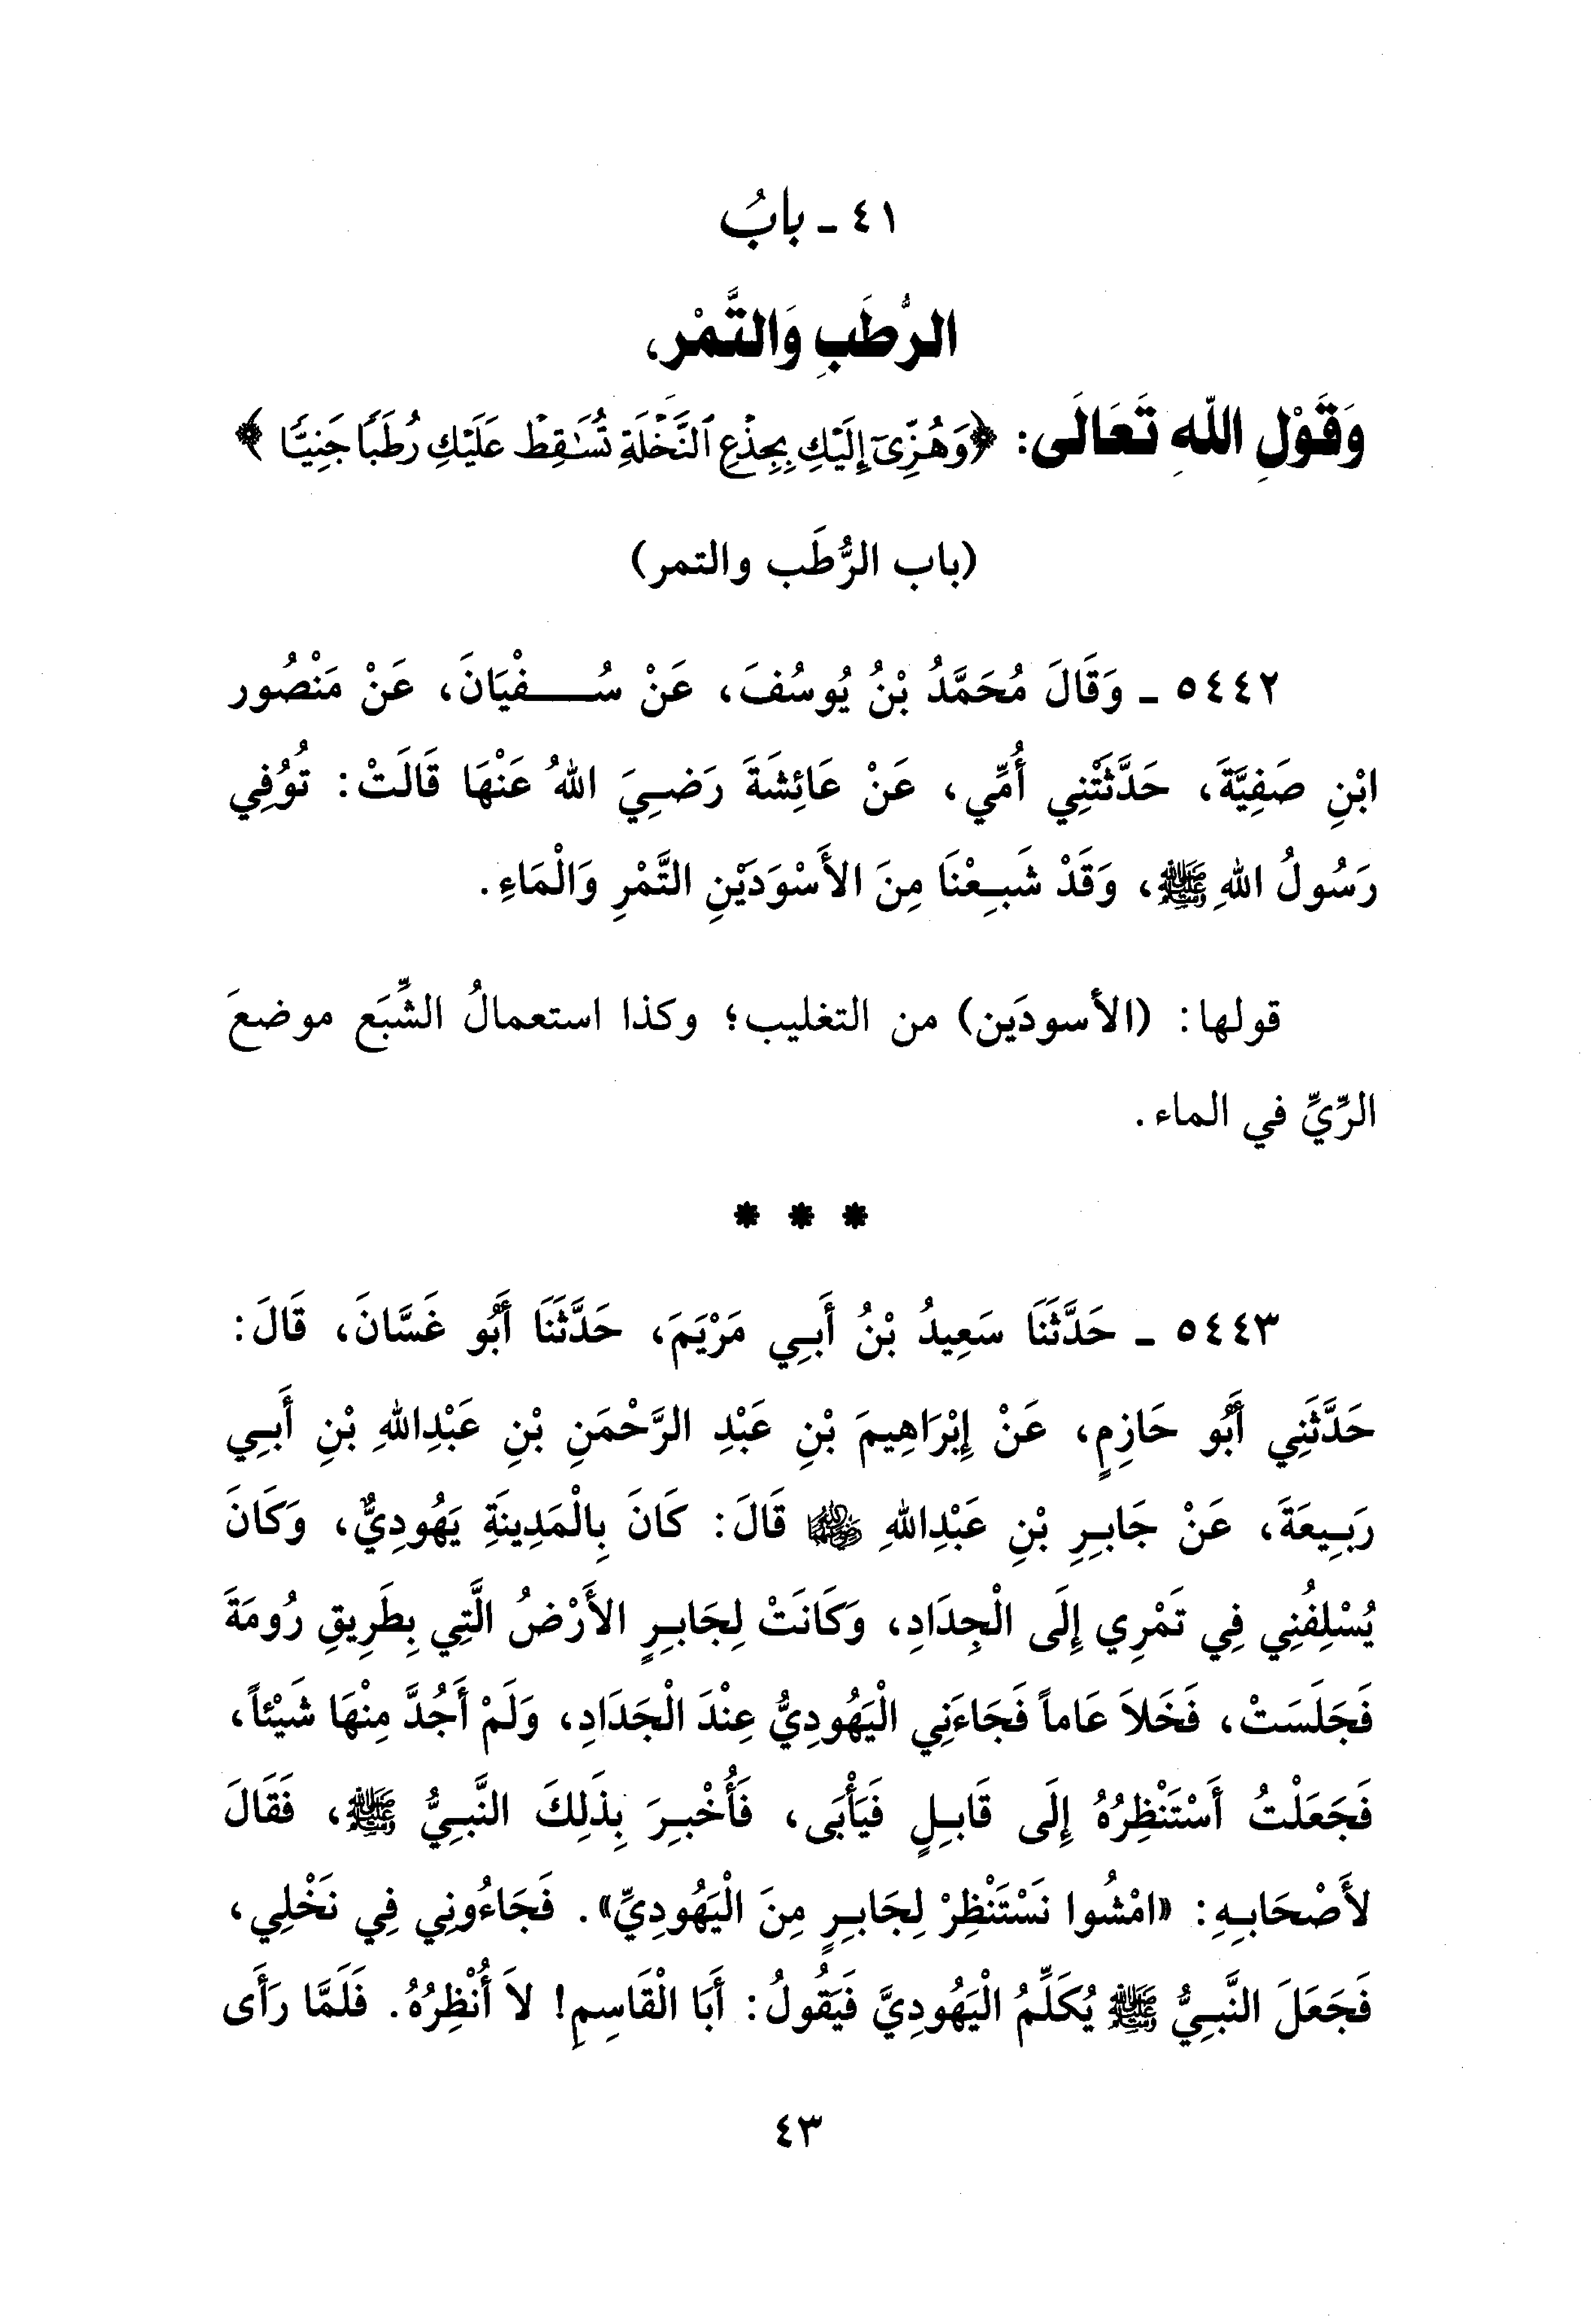 ٤١ ـ بابُ
الرُّطَبِ وَالتَّمْرِ،
وَقَوْلِ اللهِ تَعَالَى: ﴿وَهُزِّىٓ إِلَيْكِ بِجِذْعِ ٱلنَّخْلَةِ تُسَٰقِطْ عَلَيْكِ رُطَبًا جَنِيًّا﴾
(باب الرُّطَب والتمر)
٥٤٤٢ ـ وَقَالَ مُحَمَّدُ بْنُ يُوسُفَ، عَنْ سُــفْيَانَ، عَنْ مَنْصُورِ
ابْنِ صَفِيَّةَ، حَدَّثَتْنِي أُمِّي، عَنْ عَائِشَةَ رَضِيَ اللهُ عَنْهَا قَالَتْ: تُوُفِي
رَسُولُ اللهِ ﷺ، وَقَدْ شَبِعْنَا مِنَ الأَسْوَدَيْنِ التَّمْرِ وَالْمَاءِ.
قولها: (الأسودَين) من التغليب؛ وكذا استعمالُ الشِّبَع موضعَ
الرِّيِّ في الماء.
* * *
٥٤٤٣ ـ حَدَّثَنَا سَعِيدُ بْنُ أَبِي مَرْيَمَ، حَدَّثَنَا أَبُو غَسَّانَ، قَالَ:
حَدَّثَنِي أَبُو حَازِمٍ، عَنْ إِبْرَاهِيمَ بْنِ عَبْدِ الرَّحْمَنِ بْنِ عَبْدِاللهِ بْنِ أَبِي
رَبِيعَةَ، عَنْ جَابِرِ بْنِ عَبْدِاللهِ رضي الله عنهما قَالَ: كَانَ بِالْمَدِينَةِ يَهُودِيٌّ، وَكَانَ
يُسْلِفُنِي فِي تَمْرِي إِلَى الْجِدَادِ، وَكَانَتْ لِجَابِرٍ الأَرْضُ الَّتِي بِطَرِيقِ رُومَةَ
فَجَلَسَتْ، فَخَلاَ عَاماً فَجَاءَنِي الْيَهُودِيُّ عِنْدَ الْجَدَادِ، وَلَمْ أَجُدَّ مِنْهَا شَيْئاً،
فَجَعَلْتُ أَسْتَنْظِرُهُ إِلَى قَابِلٍ فَيَأْبَى، فَأُخْبِرَ بِذَلِكَ النَّبِيُّ ﷺ، فَقَالَ
لأَصْحَابِهِ: «امْشُوا نَسْتَنْظِرْ لِجَابِرٍ مِنَ الْيَهُودِيِّ». فَجَاءُونِي فِي نَخْلِي،
فَجَعَلَ النَّبِيُّ ﷺ يُكَلِّمُ الْيَهُودِيَّ فَيَقُولُ: أَبَا الْقَاسِمِ! لاَ أُنْظِرُهُ. فَلَمَّا رَأَى
٤٣